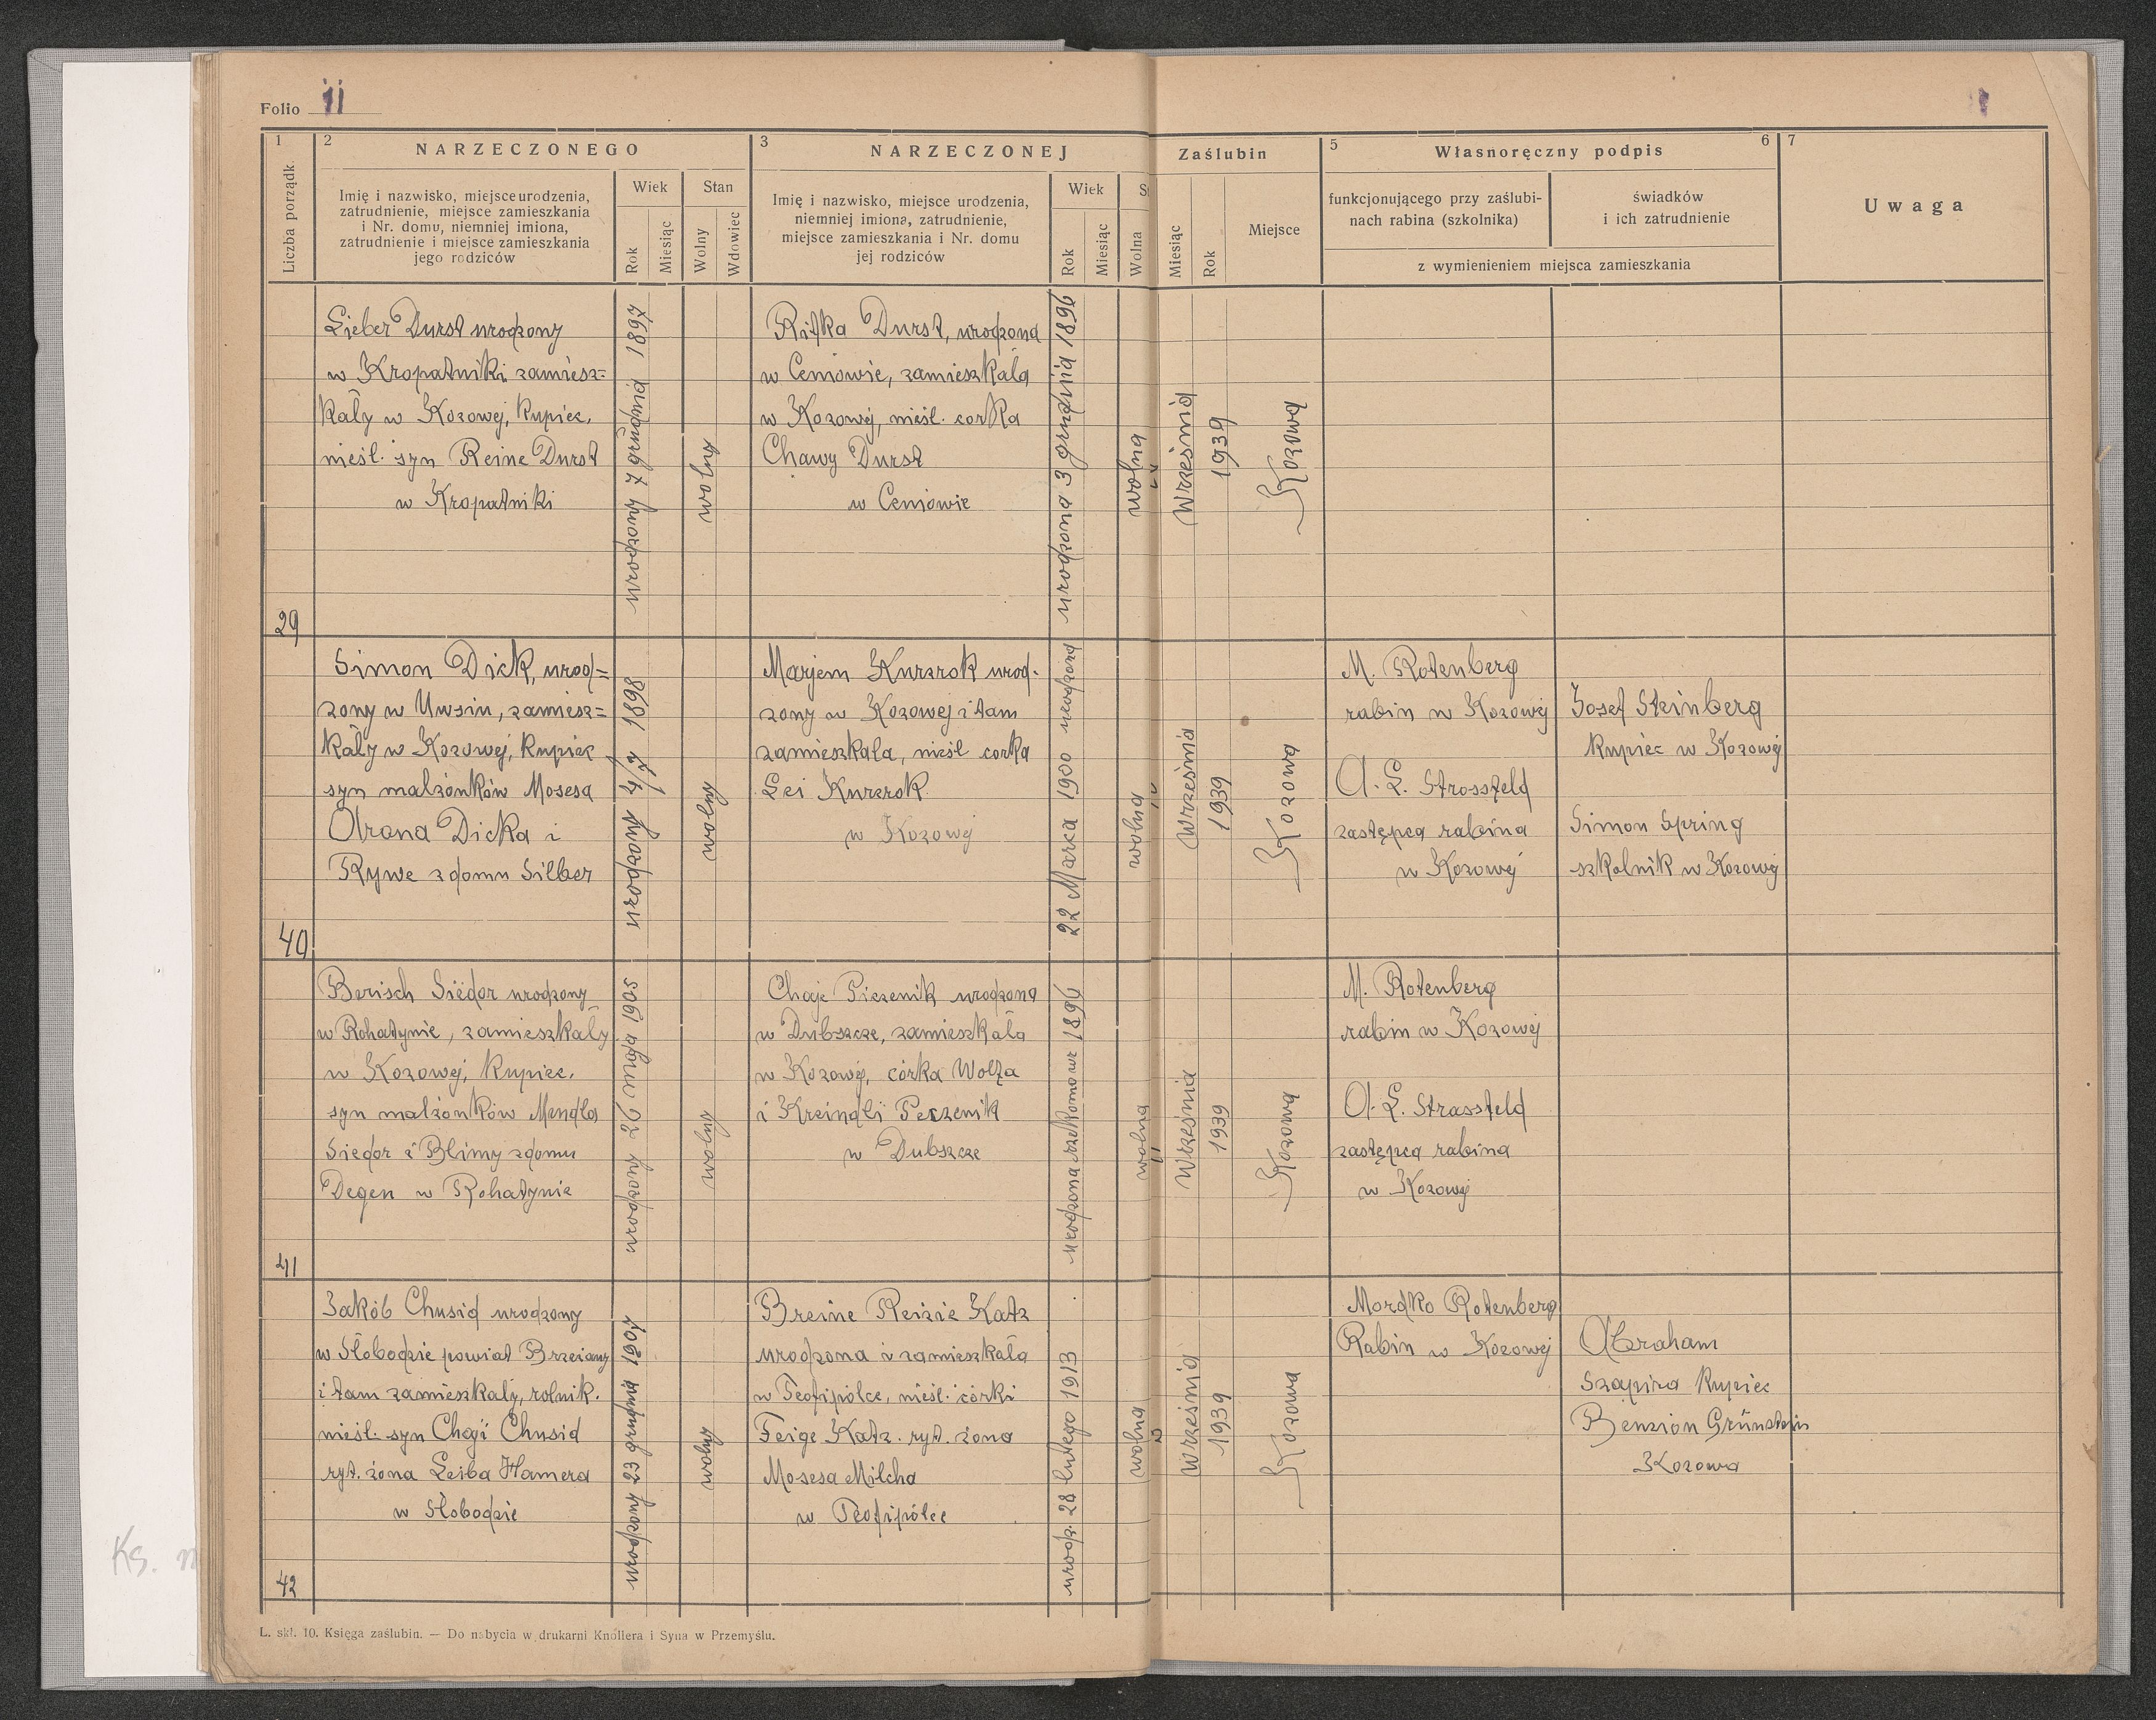 Folio 11
1
2
NARZECZONEGO
3
NARZECZONEJ
Zaślubin
5
Własnoręczny podpis
6
7
Liczba porządk
Imię i nazwisko, miejsce urodzenia,
zatrudnienie, miejsce zamieszkania
i Nr. domu, niemniej imiona,
zatrudnienie i miejsce zamieszkania
jego rodziców
Wiek
Rok
Miesiąc
Stan
Wolny
Wdowiec
Imię i nazwisko, miejsce urodzenia,
niemniej imiona, zatrudnienie,
miejsce zamieszkania i Nr. domu
jej rodziców
Wiek
Rok
Miesiąc
St
Wolna
Miesiąc
Rok
Miejsce
funkcjonującego przy zaślubi-
nach rabina (szkolnika)
świadków
i ich zatrudnienie
z wymienieniem miejsca zamieszkania
Uwaga
29
Lieber Durst urodzony
w Kropatniki zamiesz=
kały w Kozowej, kupiec,
nieśl. syn Reine Durst
w Kropatniki
urodzony 7 grudnia 1897
wolny
Rifka Durst, urodzona
w Ceniowie, zamieszkała
w Kozowej, nieśl. corka
Chawy Durst
w Ceniowie
urodzona 3 grudnia 1896
wolna
Września
1939
Kozowa
40
Simon Dick, urod=
zony w Uwsiu, zamiesz=
kały w Kozowej, kupiec
syn malżonków Mosesa
Arona Dicka i
Rywe z domu Silber
urodzony 4/7 1898
wolny
Marjem Kurzrok urod.
zony w Kozowej i tam
zamieszkala, nieśl corka
Lei Kurzrok
w Kozowej
22 Marca 1900 urodzona
wolna
Września
1939
Kozowa
M. Rotenberg
rabin w Kozowej
A. L. Strossfeld
zastępca rabina
w Kozowej
Josef Steinberg
kupiec w Kozowej
Simon Spring
szkolnik w Kozowej
41
Berisch Siedor urodzony
w Rohatynie, zamieszkały
w Kozowej, kupiec,
syn malżonków Mendla
Siedor i Blimy z domu
Degen w Rohatynie
urodzony 22 maja 1905
wolny
Chaje Piczenik urodzona
w Dubszcze, zamieszkała
w Kozowej, córka Wolfa
i Kreindli Peczenik
w Dubszcze
urodzona rzekomo w r 1896
wolna
Września
1939
Kozowa
M. Rotenberg
rabin w Kozowej
A. L. Strassfeld
zastępca rabina
w Kozowej
42
Jakób Chusid urodzony
w Słobodzie powiat Brzeiany
i tam zamieszkały, rolnik.
nieśl. syn Chaji Chusid
ryt. żona Leiba Hamera
w Słobodzie
urodzony 23 grudnia 1907
wolny
Breine Reizie Katz
urodzona i zamieszkała
w Teofipólce, nieśl. córki
Feige Katz. ryt. żona
Mosesa Milcha
w Teofipólce
urodz. 28 lutego 1913
wolna
Września
1939
Kozowa
Mordko Rotenberg
Rabin w Kozowej
Abraham
Szapira kupiec
Benzion Grünstein
Kozowa
L. skł. 10. Księga zaślubin. — Do nabycia w drukarni Knollera i Syna w Przemyślu.
Ks.